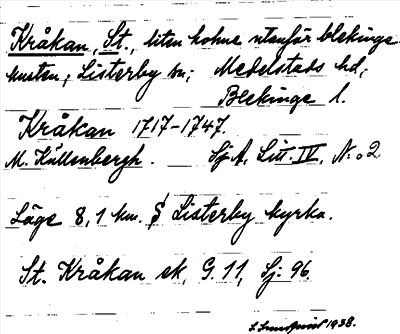 Kråkan, St., liten holme utanför Blekinge-
kusten; Listerby sn; Medelstads hd;
Blekinge l.
Kråkan 1717-1747.
M. Källenbergh. Sj A. Litt. IV, N:o 2
Läge 8,1 km. S Listerby kyrka.
St. Kråkan ek, G. 11, Sj. 96
1938.